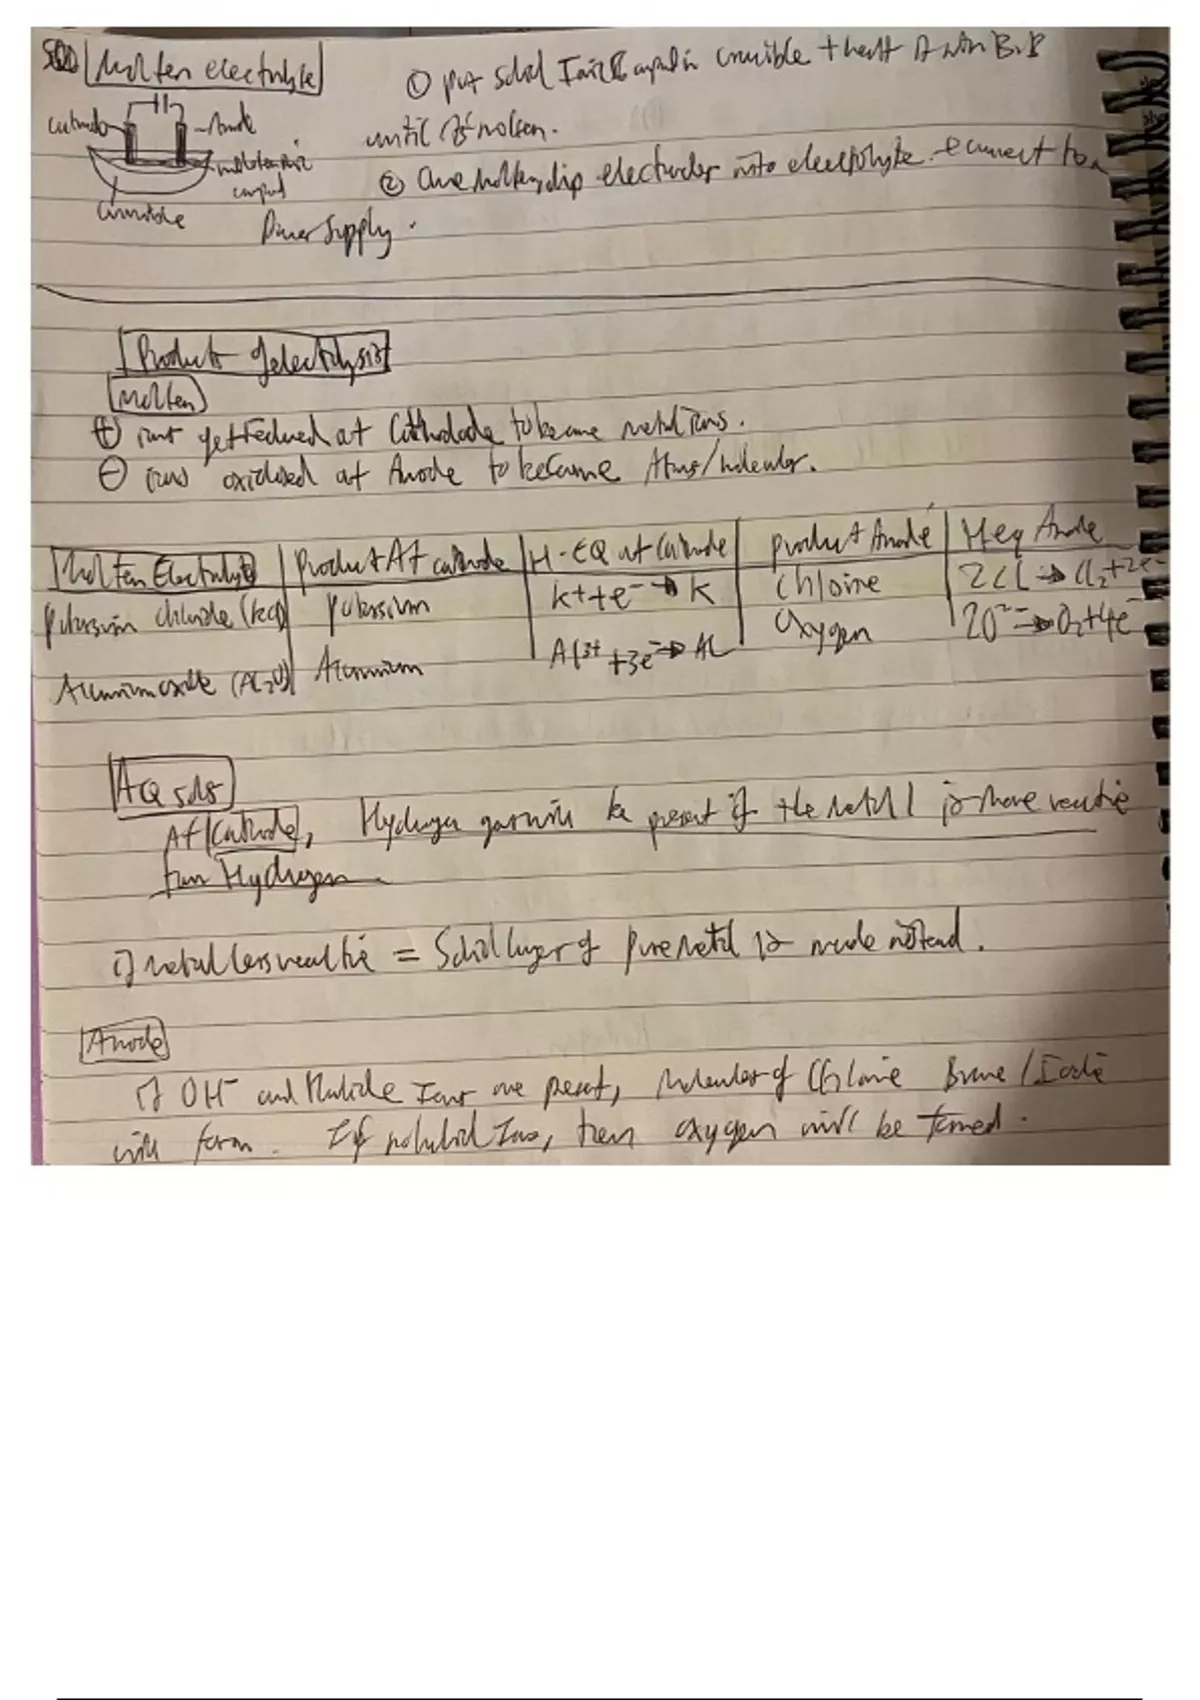 Molten electrolyte
① put solid Ionic compd in crucible + heat it with B.B
until it's molten.
cathode
Anode
molten ionic
compd
crucible
② Once molten, dip electrodes into electrolyte. connect to a
Power Supply.
Products of electrolysis
Molten
⊕ ions get reduced at Cathode to become metal ions.
⊖ ions oxidised at Anode to become Atoms/molecules.
Molten Electrolyte | Product At cathode | H-EQ at Cathode | product Anode | H eq Anode
potassium chloride (KCl) | potassium | K+ + e- → K | Chlorine | 2Cl- → Cl2 + 2e-
Aluminium oxide (Al2O3) | Aluminium | Al3+ + 3e- → Al | Oxygen | 2O2- → O2 + 4e-
AQ solns
At Cathode, Hydrogen gas will be present if the metal is more reactive
than Hydrogen
if metal less reactive = Solid layer of pure metal is made instead.
Anode
if OH- and Halide Ions are present, molecules of Chlorine Bromine / Iodine
will form. If no halid Ions, then oxygen will be formed.